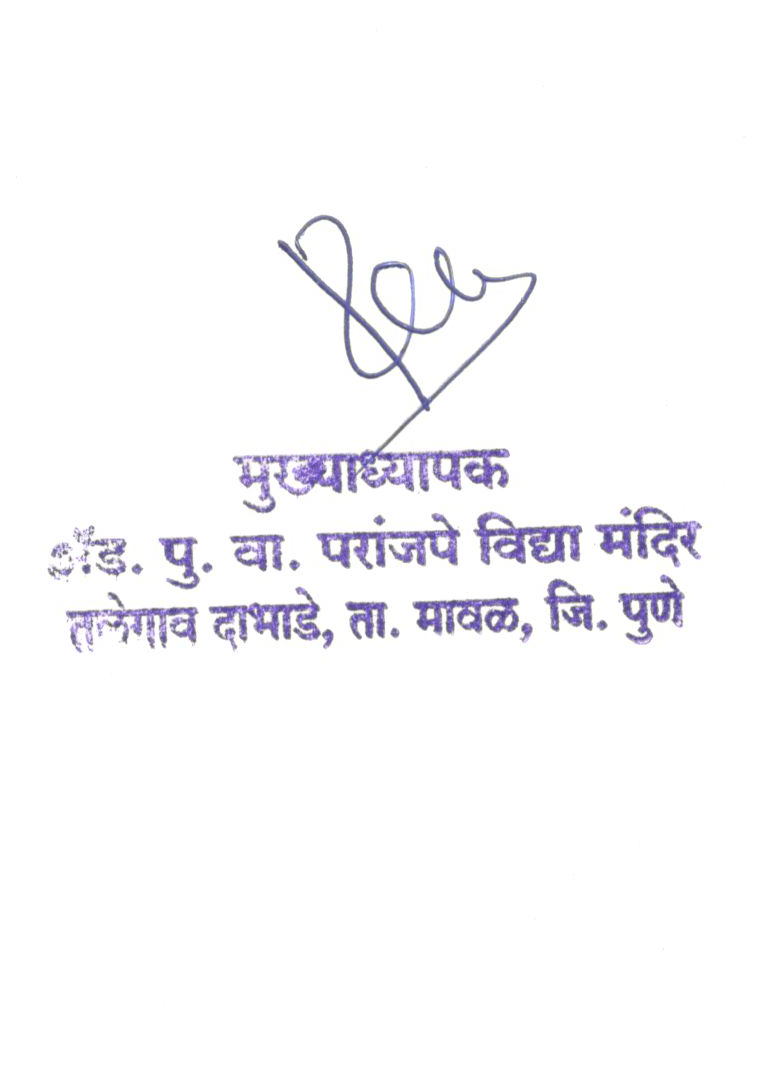 मुख्याध्यापक
ॲड. पु. वा. परांजपे विद्या मंदिर
तळेगाव दाभाडे, ता. मावळ, जि. पुणे